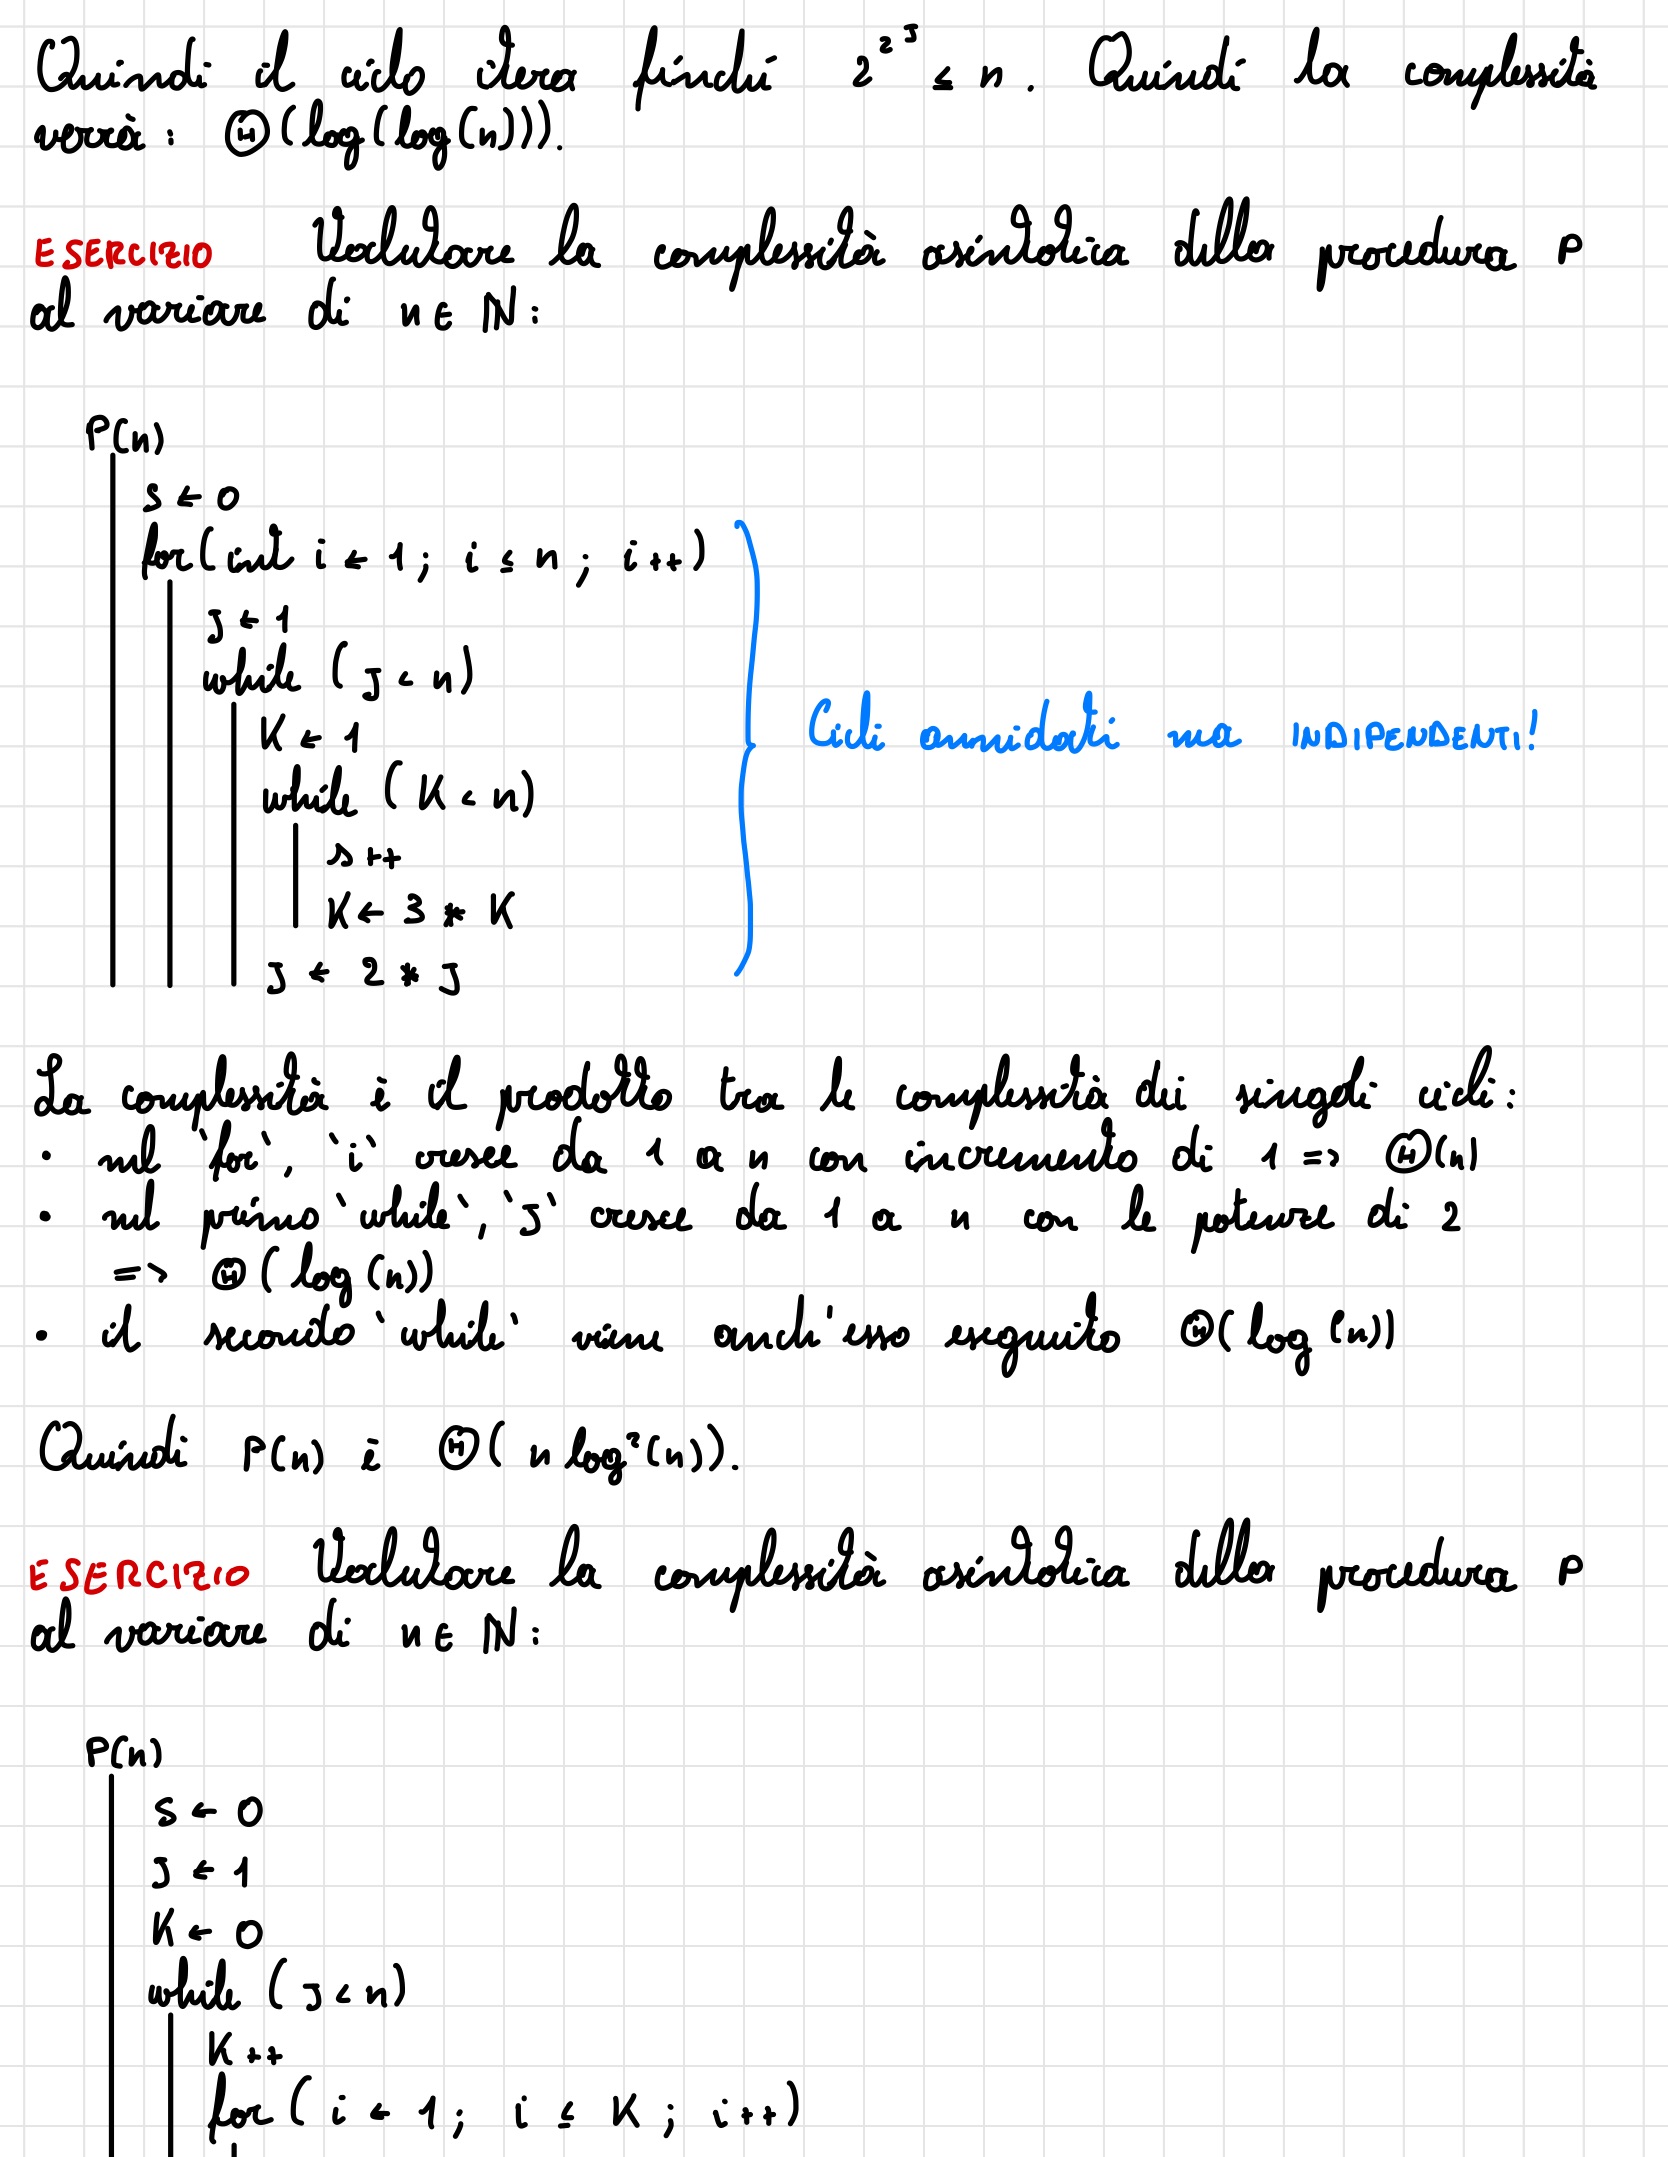 Quindi il ciclo itera finché 2^2^J ≤ n. Quindi la complessità
verrà: Θ(log(log(n))).
ESERCIZIO Valutare la complessità asintotica della procedura P
al variare di n ∈ ℕ:
P(n)
S ← 0
for(int i ← 1; i ≤ n; i++)
J ← 1
while (J < n)
K ← 1
while (K < n)
Cicli annidati ma INDIPENDENTI!
s++
K ← 3 * K
J ← 2 * J
La complessità è il prodotto tra le complessità dei singoli cicli:
• nel `for`, `i` cresce da 1 a n con incremento di 1 => Θ(n)
• nel primo `while`, `J` cresce da 1 a n con le potenze di 2
=> Θ(log(n))
• il secondo `while` viene anch'esso eseguito Θ(log(n))
Quindi P(n) è Θ(n log²(n)).
ESERCIZIO Valutare la complessità asintotica della procedura P
al variare di n ∈ ℕ:
P(n)
S ← 0
J ← 1
K ← 0
while (J < n)
K++
for (i ← 1; i ≤ K; i++)